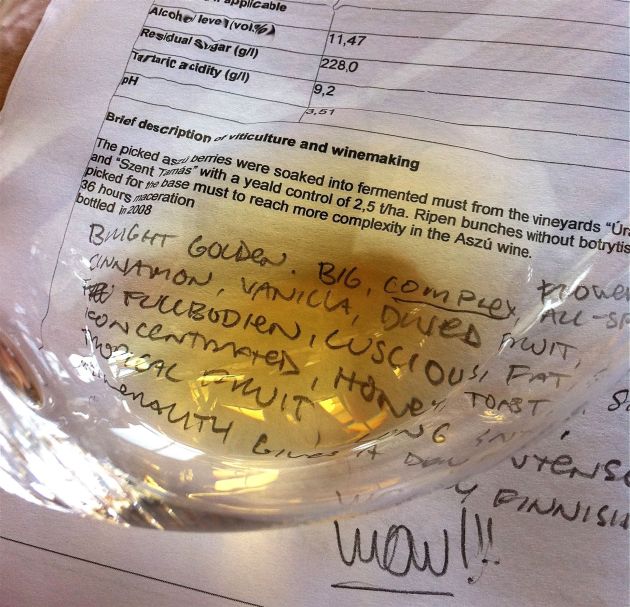 applicable
Alcohol level (vol.%)
11,47
Residual Sugar (g/l)
228,0
Tartaric acidity (g/l)
9,2
pH
3,51
Brief description of viticulture and winemaking
The picked aszú berries were soaked into fermented must from the vineyards "Úrá
and "Szent Tamás" with a yeald control of 2,5 t/ha. Ripen bunches without botrytis
picked for the base must to reach more complexity in the Aszú wine.
36 hours maceration
bottled in 2008
BRIGHT GOLDEN. BIG, COMPLEX, FLOWER
CINNAMON, VANILLA, DRIED FRUIT, ALL-SP
FULLBODIED, LUSCIOUS, FAT,
CONCENTRATED, HONEY, TOAST,
TROPICAL FRUIT, LONG
GIVES IT
FINNISH
WOW!!!